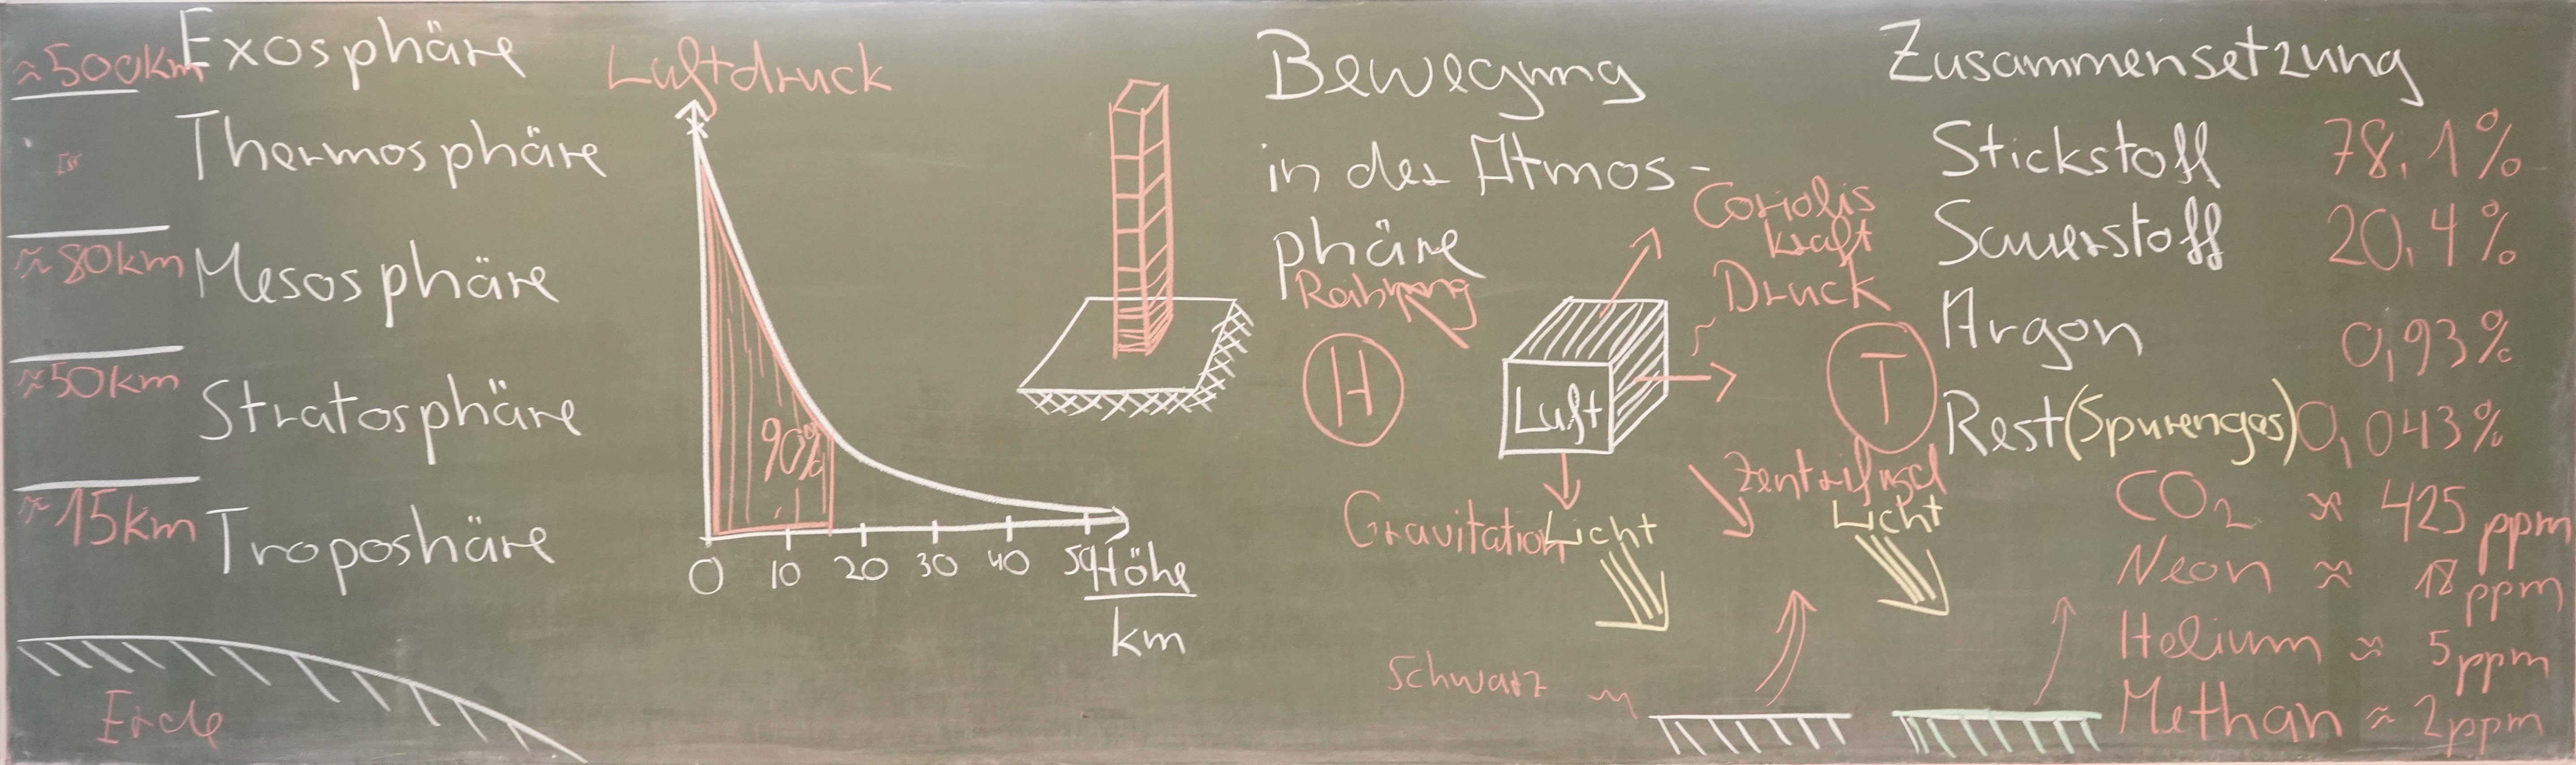 Exosphäre
≈500km
Thermosphäre
≈80km
Mesosphäre
≈50km
Stratosphäre
≈15km
Troposhäre
Erde
Luftdruck
90%
0 10 20 30 40 50
Höhe
km
Bewegung
in der Atmos-
phäre
Reibung
Coriolis
kraft
Druck
H
Luft
T
Gravitation
Zentrifugal
Licht
Licht
Schwarz
Zusammensetzung
Stickstoff 78,1%
Sauerstoff 20,4%
Argon 0,93%
Rest (Spurengas) 0,043%
CO2 ≈ 425 ppm
Neon ≈ 18 ppm
Helium ≈ 5 ppm
Methan ≈ 2 ppm